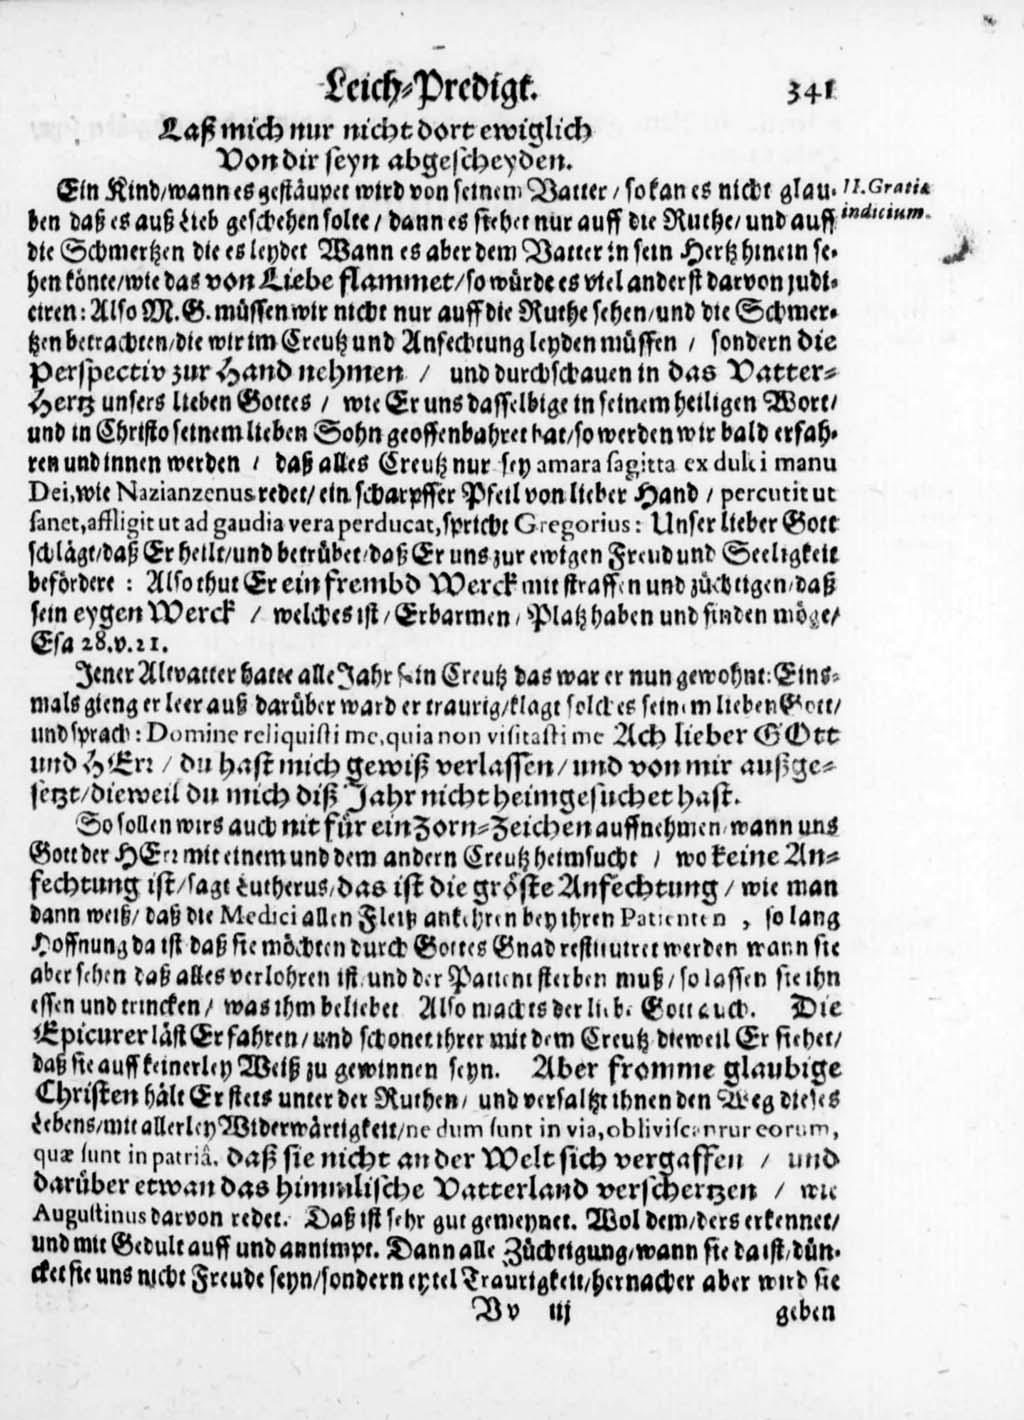 Leich-Predigt. 341
Laß mich nur nicht dort ewiglich
Von dir seyn abgescheyden.
Ein Kind/wann es gestäupet wird von seinem Vatter / so kan es nicht glau- II. Gratiæ
ben daß es auß Lieb geschehen solte / dann es siehet nur auff die Ruthe/ und auff indicium.
die Schmertzen die es leydet Wann es aber dem Vatter in sein Hertz hinein se-
hen könte/wie das von Liebe flammet/so würde es viel anderst darvon judi-
ciren: Also M. G. müssen wir nicht nur auff die Ruthe sehen/und die Schmer-
tzen betrachten/die wir im Creutz und Anfechtung leyden müssen / sondern die
Perspectiv zur Hand nehmen / und durchschauen in das Vatter-
Hertz unsers lieben Gottes / wie Er uns dasselbige in seinem heiligen Wort/
und in Christo seinem lieben Sohn geoffenbahret hat/so werden wir bald erfah-
ren und innen werden / daß alles Creutz nur sey amara sagitta ex dulci manu
Dei,wie Nazianzenus redet/ ein scharpffer Pfeil von lieber Hand / percutit ut
sanet,affligit ut ad gaudia vera perducat,spricht Gregorius: Unser lieber Gott
schlägt/daß Er heilt/und betrübet/daß Er uns zur ewigen Freud und Seeligkeit
befördere : Also thut Er ein frembd Werck mit straffen und züchtigen/daß
sein eygen Werck / welches ist/ Erbarmen/ Platz haben und finden möge/
Esa 28.v.21.
Jener Altvatter hatte alle Jahr sein Creutz das war er nun gewohnt: Eins-
mals gieng er leer auß darüber ward er traurig/klagt solches seinem lieben Gott/
und sprach : Domine reliquisti me,quia non visitasti me Ach lieber GOtt
und HErr / du hast mich gewiß verlassen/ und von mir außge-
setzt/dieweil du mich diß Jahr nicht heimgesuchet hast.
So sollen wirs auch nit für ein Zorn-Zeichen auffnehmen/wann uns
Gott der HErr mit einem und dem andern Creutz heimsucht / wo keine An-
fechtung ist/sagt Lutherus/das ist die gröste Anfechtung / wie man
dann weiß/ daß die Medici allen Fleiß ankehren bey ihren Patienten , so lang
Hoffnung da ist daß sie möchten durch Gottes Gnad restituiret werden wann sie
aber sehen daß alles verlohren ist/ und der Patient sterben muß / so lassen sie ihn
essen und trincken/ was ihm beliebet Also machts der liebe Gott auch. Die
Epicurer läst Er fahren/und schonet ihrer mit dem Creutz dieweil Er siehet/
daß sie auff keinerley Weiß zu gewinnen seyn. Aber fromme glaubige
Christen hält Er stets unter der Ruthen/ und versaltzt ihnen den Weg dieses
Lebens/mit allerley Widerwärtigkeit/ne dum sunt in via,obliviscantur eorum,
quæ sunt in patriâ. daß sie nicht an der Welt sich vergaffen / und
darüber etwan das himmlische Vatterland verschertzen / wie
Augustinus darvon redet. Daß ist sehr gut gemeynet. Wol dem/ders erkennet/
und mit Gedult auff und annimpt. Dann alle Züchtigung/wann sie da ist/dün-
cket sie uns nicht Freude seyn/sondern eytel Traurigkeit/hernacher aber wird sie
Vv iij geben